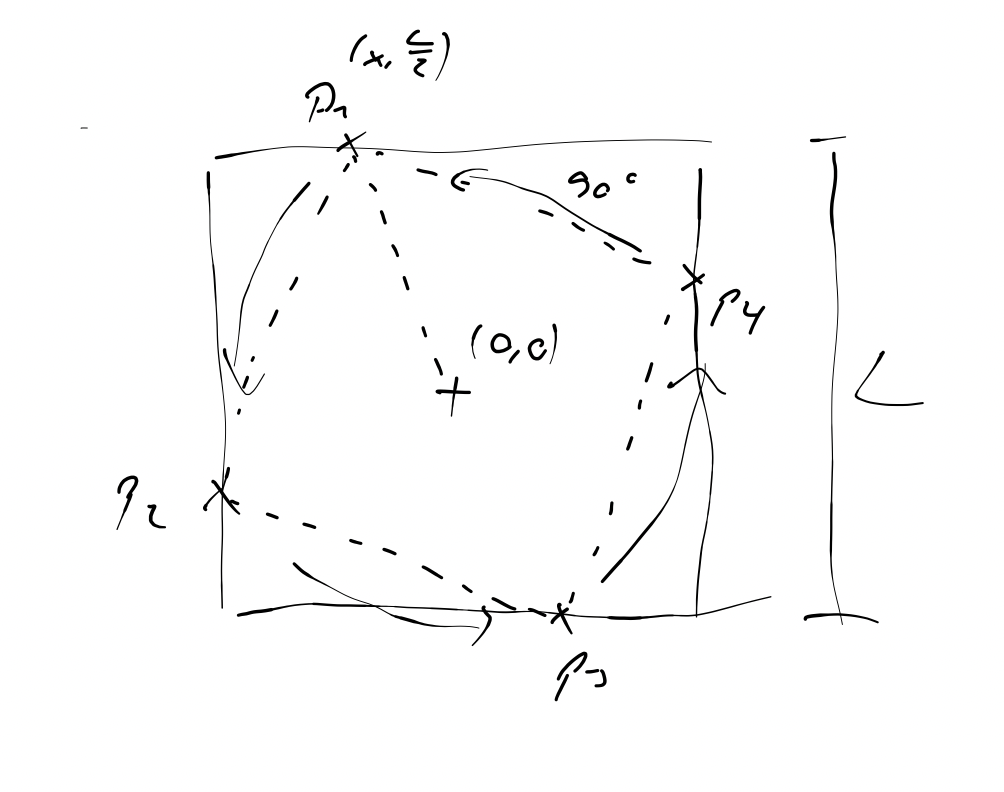 (x, L/2)
P1
90°
P4
(0,0)
L
P2
P3